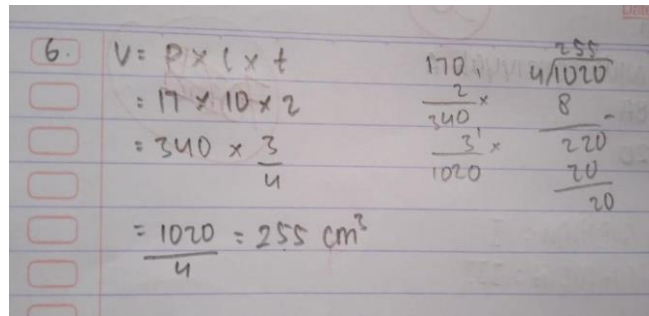 6. V = p x l x t
= 17 x 10 x 2
= 340 x 3/4
= 1020/4 = 255 cm³
170
2 x
340
3 x
1020
255
4/1020
8 -
220
20
20